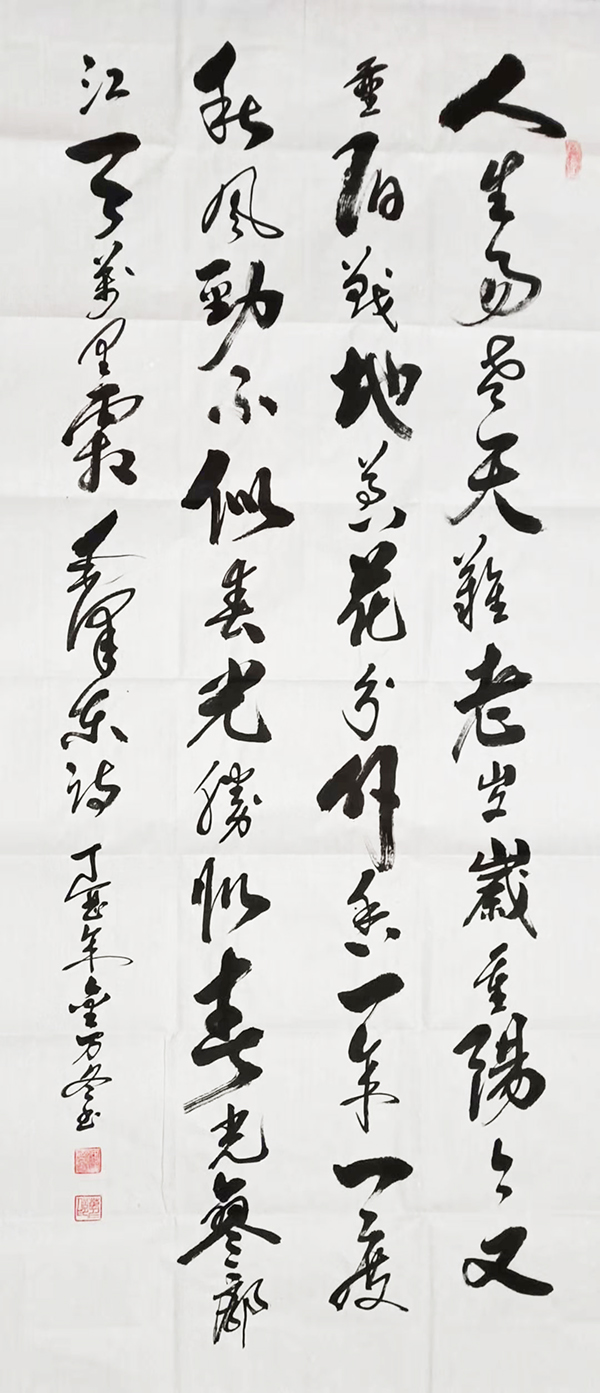 人生易老天難老岁歲重陽今又
重阳戰地黄花分外香一年一度
秋風勁不似春光勝似春光寥廓
江天萬里霜 毛澤东詩 丁年金万冬书